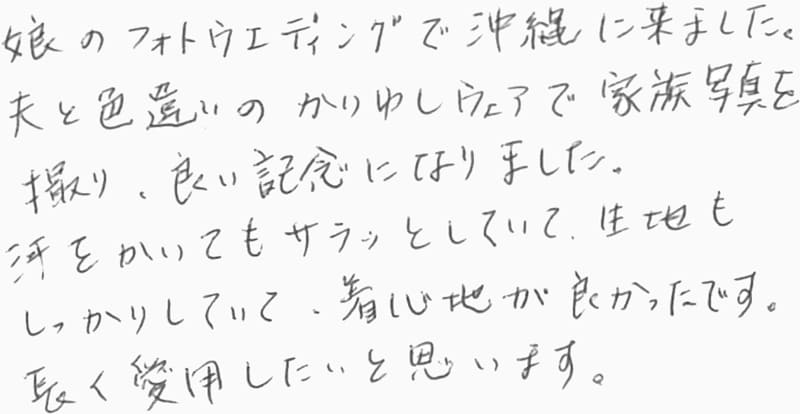 娘のフォトウエディングで沖縄に来ました。
夫と色違いのかりゆしウェアで家族写真を
撮り、良い記念になりました。
汗をかいてもサラッとしていて、生地も
しっかりしていて、着心地が良かったです。
長く愛用したいと思います。